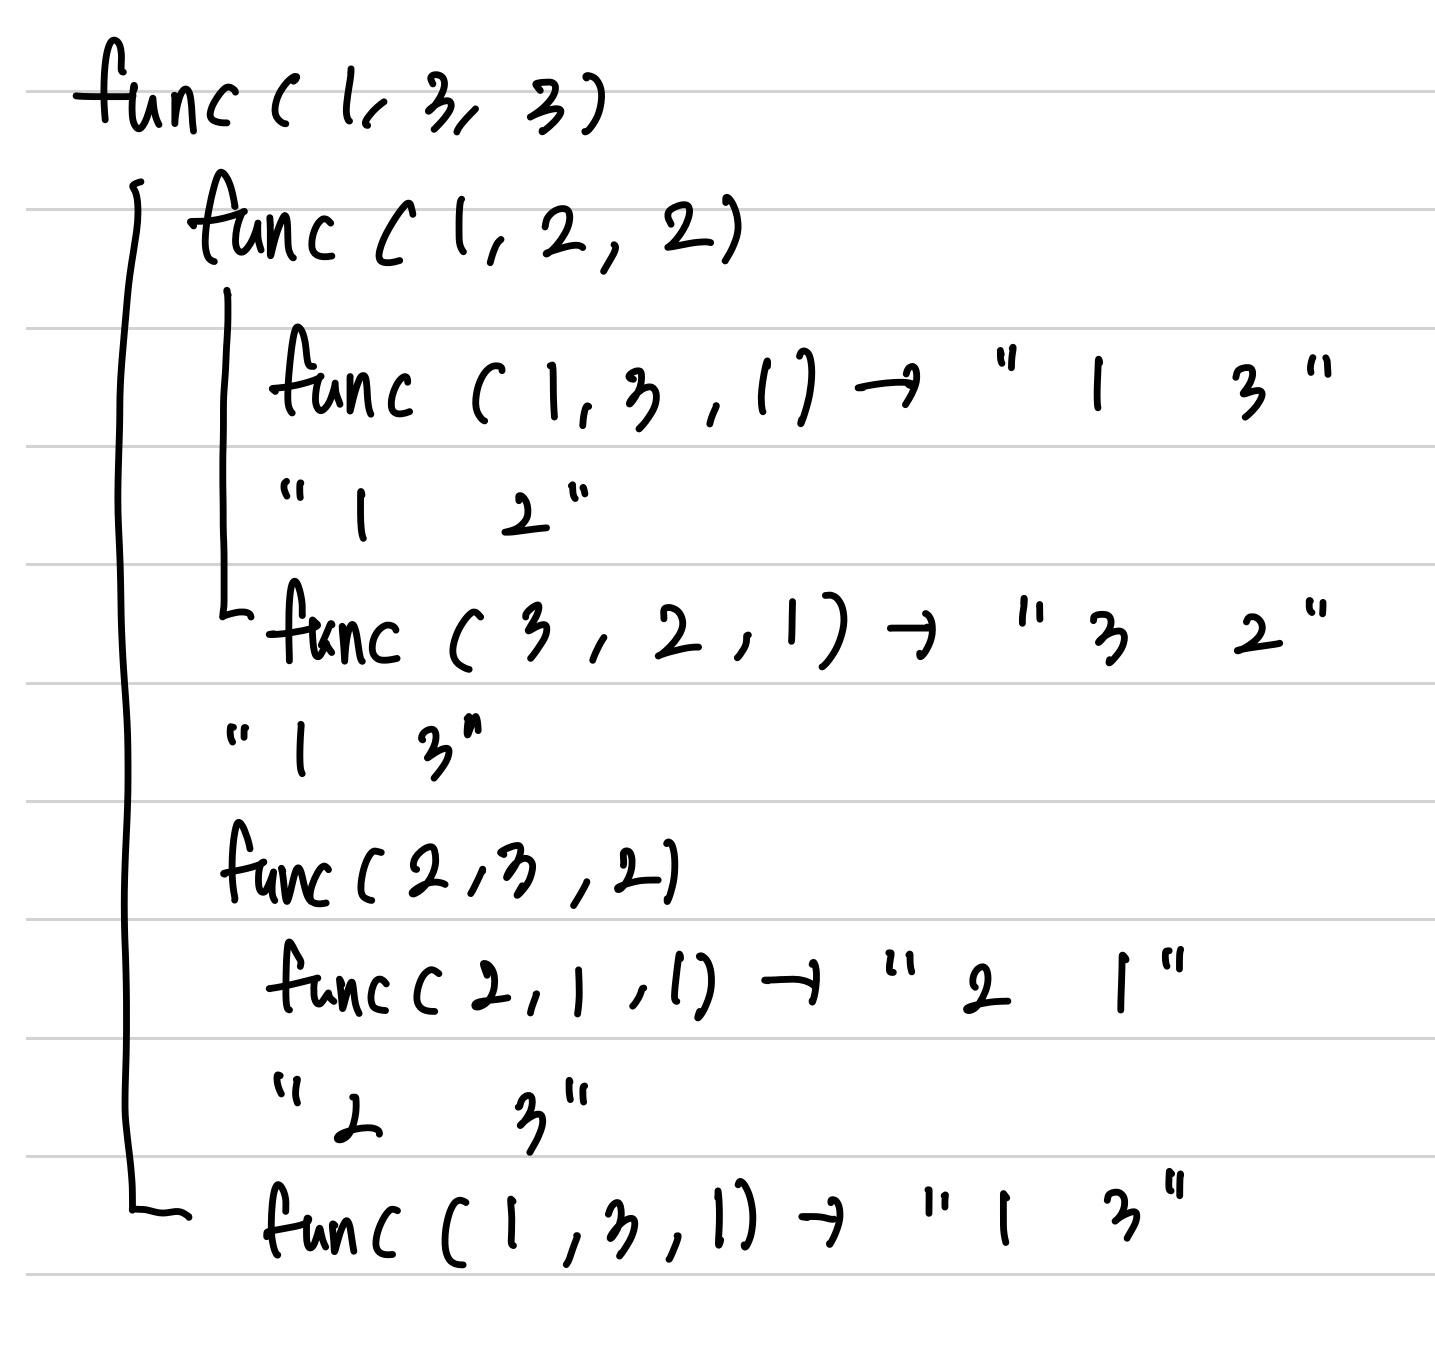 func(1, 3, 3)
func(1, 2, 2)
func(1, 3, 1) → "1 3"
"1 2"
func(3, 2, 1) → "3 2"
"1 3"
func(2, 3, 2)
func(2, 1, 1) → "2 1"
"2 3"
func(1, 3, 1) → "1 3"